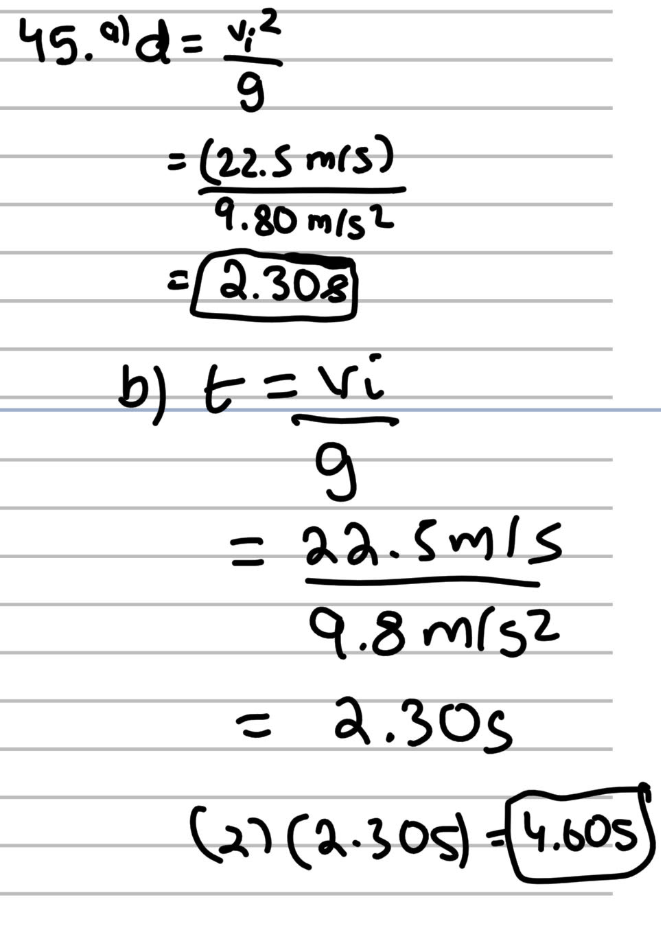 45. a) d = vi²
g
= (22.5 m/s)
9.80 m/s²
= 2.30s
b) t = vi
g
= 22.5 m/s
9.8 m/s²
= 2.30s
(2)(2.30s) = 4.60s